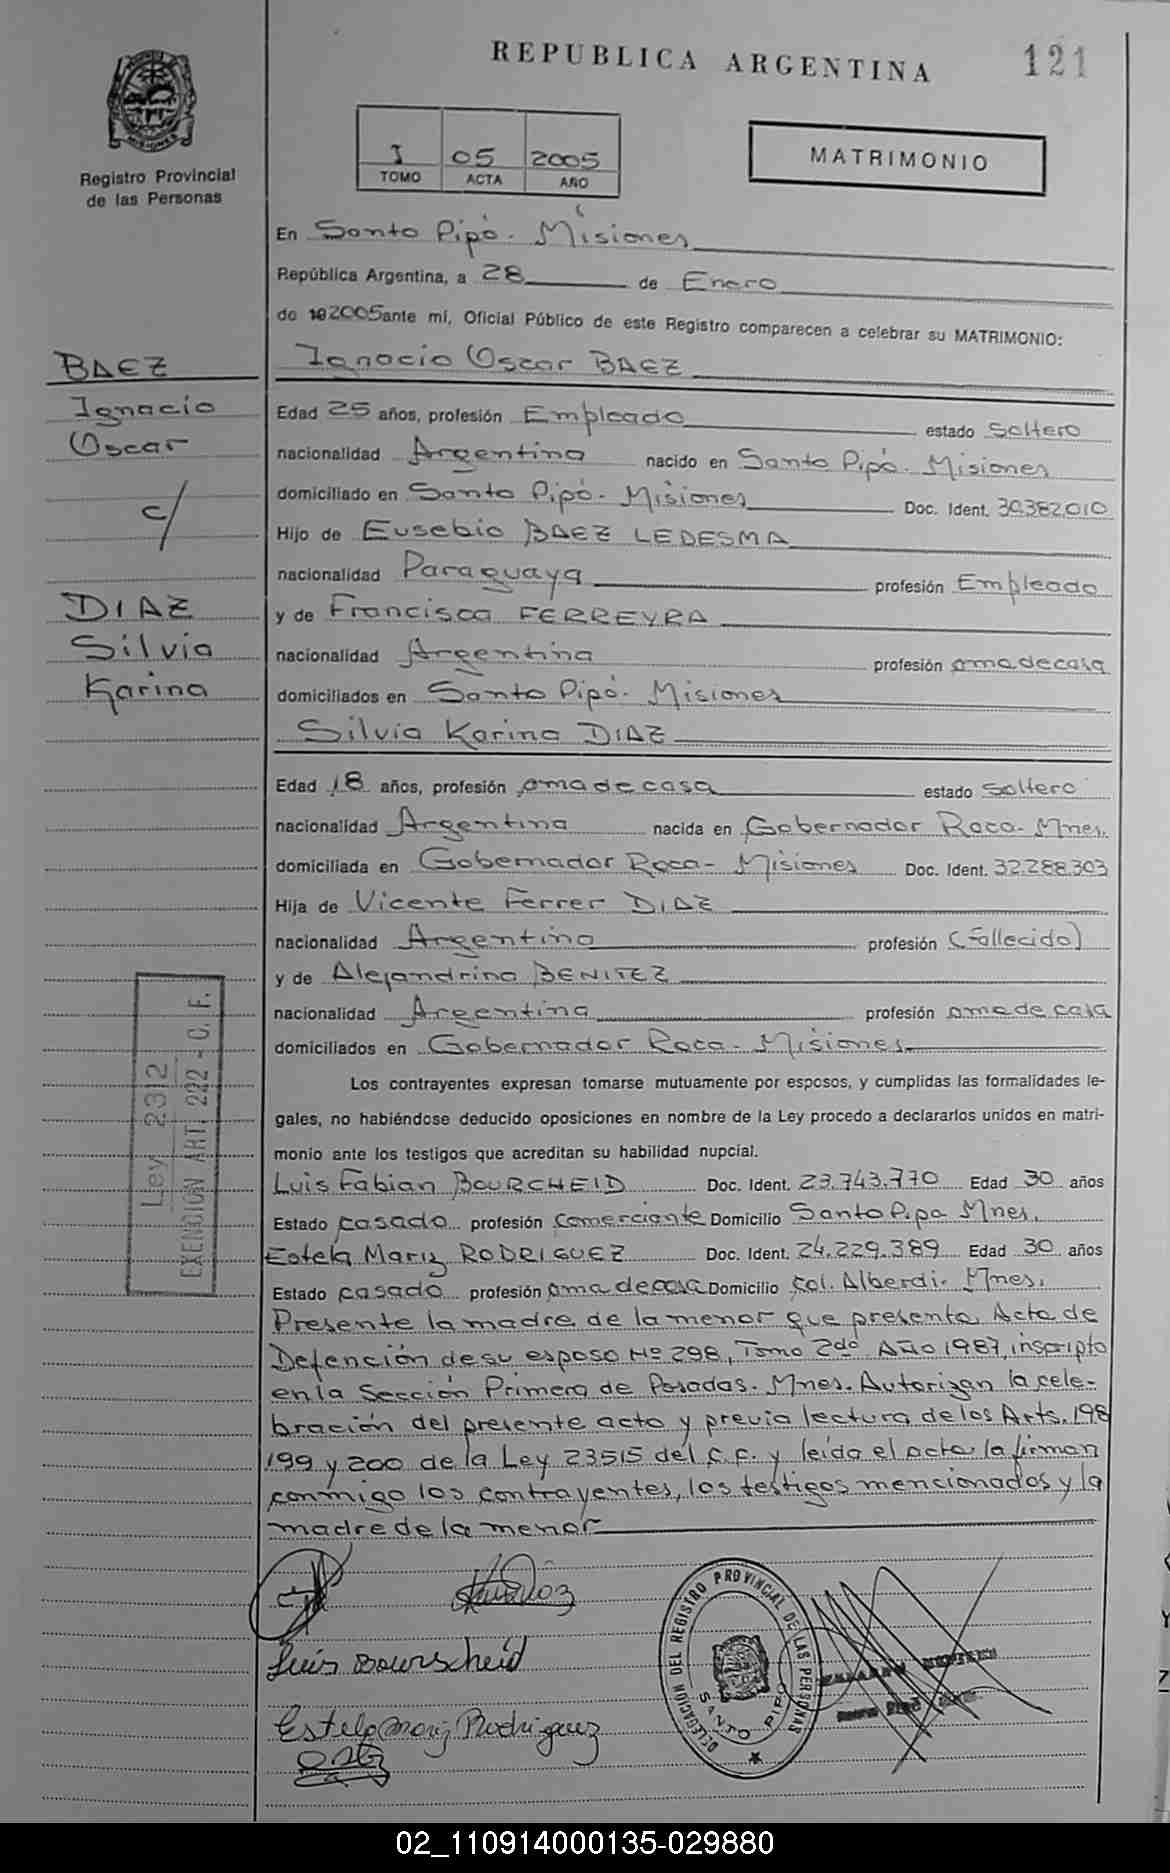 REPUBLICA ARGENTINA
121
MISIONES
Registro Provincial
de las Personas
I 05 2005
TOMO ACTA AÑO
MATRIMONIO
En Santo Pipó. Misiones
República Argentina, a 28 de Enero
de 192005 ante mí, Oficial Público de este Registro comparecen a celebrar su MATRIMONIO:
BAEZ
Ignacio
Oscar
c/
DIAZ
Silvia
Karina
Ignacio Oscar BAEZ
Edad 25 años, profesión Empleado estado Soltero
nacionalidad Argentina nacido en Santo Pipó. Misiones
domiciliado en Santo Pipó. Misiones Doc. Ident. 30.382.010
Hijo de Eusebio BAEZ LEDESMA
nacionalidad Paraguaya profesión Empleado
y de Francisca FERREYRA
nacionalidad Argentina profesión ama de casa
domiciliados en Santo Pipó. Misiones
Silvia Karina DIAZ
Edad 18 años, profesión ama de casa estado Soltero
nacionalidad Argentina nacida en Gobernador Roca. Mnes.
domiciliada en Gobernador Roca- Misiones Doc. Ident. 32.288.303
Hija de Vicente Ferrer DIAZ
nacionalidad Argentino profesión (Fallecido)
y de Alejandrina BENITEZ
nacionalidad Argentina profesión ama de casa
domiciliados en Gobernador Roca. Misiones.
Ley 2312
EXENCION ART. 222 - C. F.
Los contrayentes expresan tomarse mutuamente por esposos, y cumplidas las formalidades le-
gales, no habiéndose deducido oposiciones en nombre de la Ley procedo a declararlos unidos en matri-
monio ante los testigos que acreditan su habilidad nupcial.
Luis Fabian BOURCHEID Doc. Ident. 23.743.770 Edad 30 años
Estado casado profesión Comerciante Domicilio Santo Pipo Mnes.
Estela Mary RODRIGUEZ Doc. Ident. 24.229.389 Edad 30 años
Estado casado profesión ama de casa Domicilio Col. Alberdi. Mnes.
Presente la madre de la menor que presenta Acta de
Defención de su esposo Nº 298, Tomo 2do Año 1987, inscripto
en la Sección Primera de Posadas. Mnes. Autorizan la cele-
bración del presente acto y previa lectura de los Arts. 198
199 y 200 de la Ley 23515 del C.C. y leída el acta la firman
conmigo los contrayentes, los testigos mencionados y la
madre de la menor
Luis Bourscheid
Estela Mary Rodriguez
DELEGACION DEL REGISTRO PROVINCIAL DE LAS PERSONAS
SANTO PIPO
02_110914000135-029880